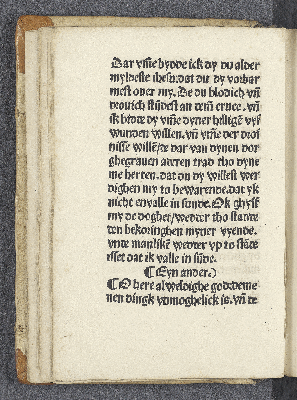 Dar vm̄e bydde ick dy du alder
myldeste ihesu: dat du dy vorbar
mest ouer my. De du blodich vn̄
drouich stūdest an dem cruce. vn̄
ik bidde dy vm̄e dyner hilligē vyf
wunden willen. vn̄ vm̄e der drof
nisse willē/de dar van dynen dor
ghegrauen aderen trad tho dyne
me herten. dat du dy willest wer
dighen my to bewarende. dat yk
nicht envalle in sunde. Ok ghyff
my de doghet/wedder tho stande
den bekoringhen myner vyende.
vnde mantlikē wedder vp to stāde
isset dat ik valle in sūde.
¶ Eyn ander.
¶ O here alweldighe god: deme
nen dingk vnmoghelick is. vn̄ de